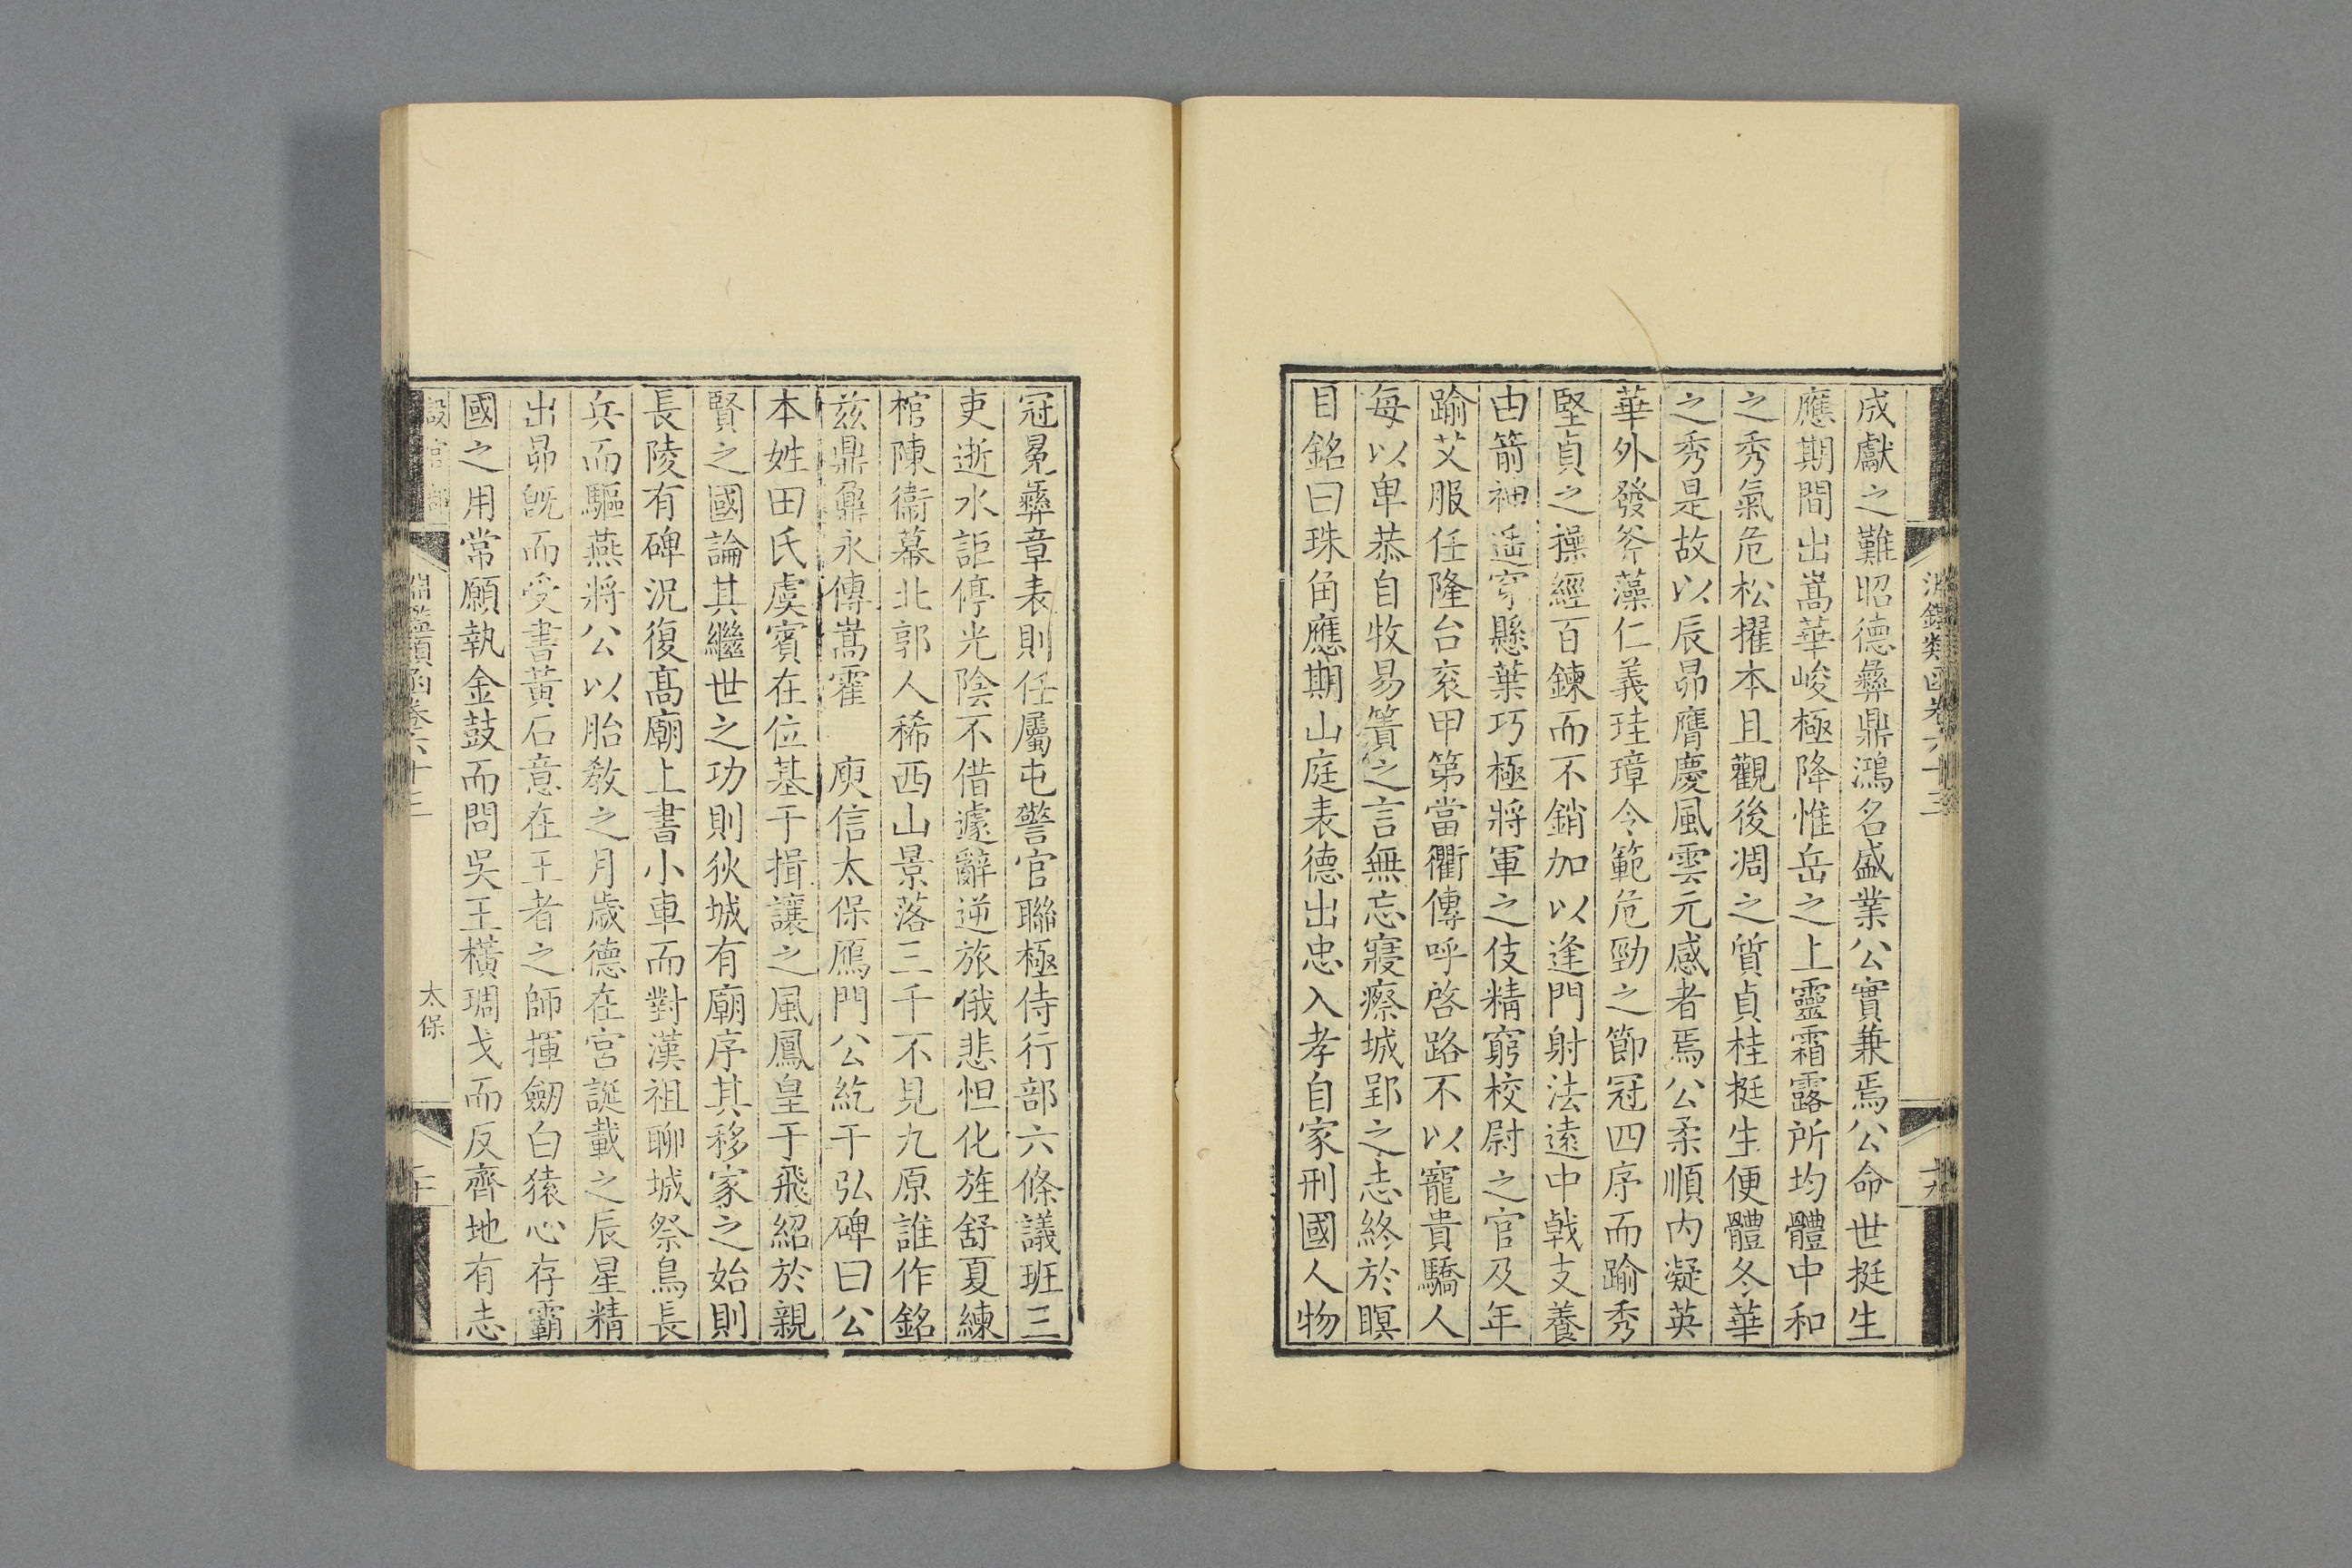 淵鑑類函卷六十三
十九
成獻之難昭德彝鼎鴻名盛業公實兼焉公命世挺生
應期間出嵩華峻極降惟岳之上靈霜露所均體中和
之秀氣危松擢本且觀後凋之質貞桂挺生便體冬華
之秀是故以辰昴膺慶風雲元感者焉公柔順內凝英
華外發斧藻仁義珪璋令範危勁之節冠四序而踰秀
堅貞之操經百鍊而不銷加以逢門射法遠中戟支養
由箭神遥穿懸葉巧極將軍之伎精窮校尉之官及年
踰艾服任隆台衮甲第當衢傳呼啓路不以寵貴驕人
每以卑恭自牧易簀之言無忘寢瘵城郢之志終於瞑
目銘曰珠角應期山庭表德出忠入孝自家刑國人物
冠冕彝章表則任屬屯警官聯極侍行部六條議班三
吏逝水詎停光陰不借遽辭逆旅俄悲怛化旌舒夏練
棺陳衞幕北郭人稀西山景落三千不見九原誰作銘
兹鼎鼐永傳嵩霍　庾信太保鴈門公紇干弘碑曰公
本姓田氏虞賓在位基于揖讓之風鳳皇于飛紹於親
賢之國論其繼世之功則狄城有廟序其移家之始則
長陵有碑況復髙廟上書小車而對漢祖聊城祭鳥長
兵而驅燕將公以胎敎之月歲德在宮誕載之辰星精
出昴旣而受書黃石意在王者之師揮劒白猿心存霸
國之用常願執金鼓而問吳王橫琱戈而反齊地有志
設官部
淵鑑類函卷六十三
太保
二十